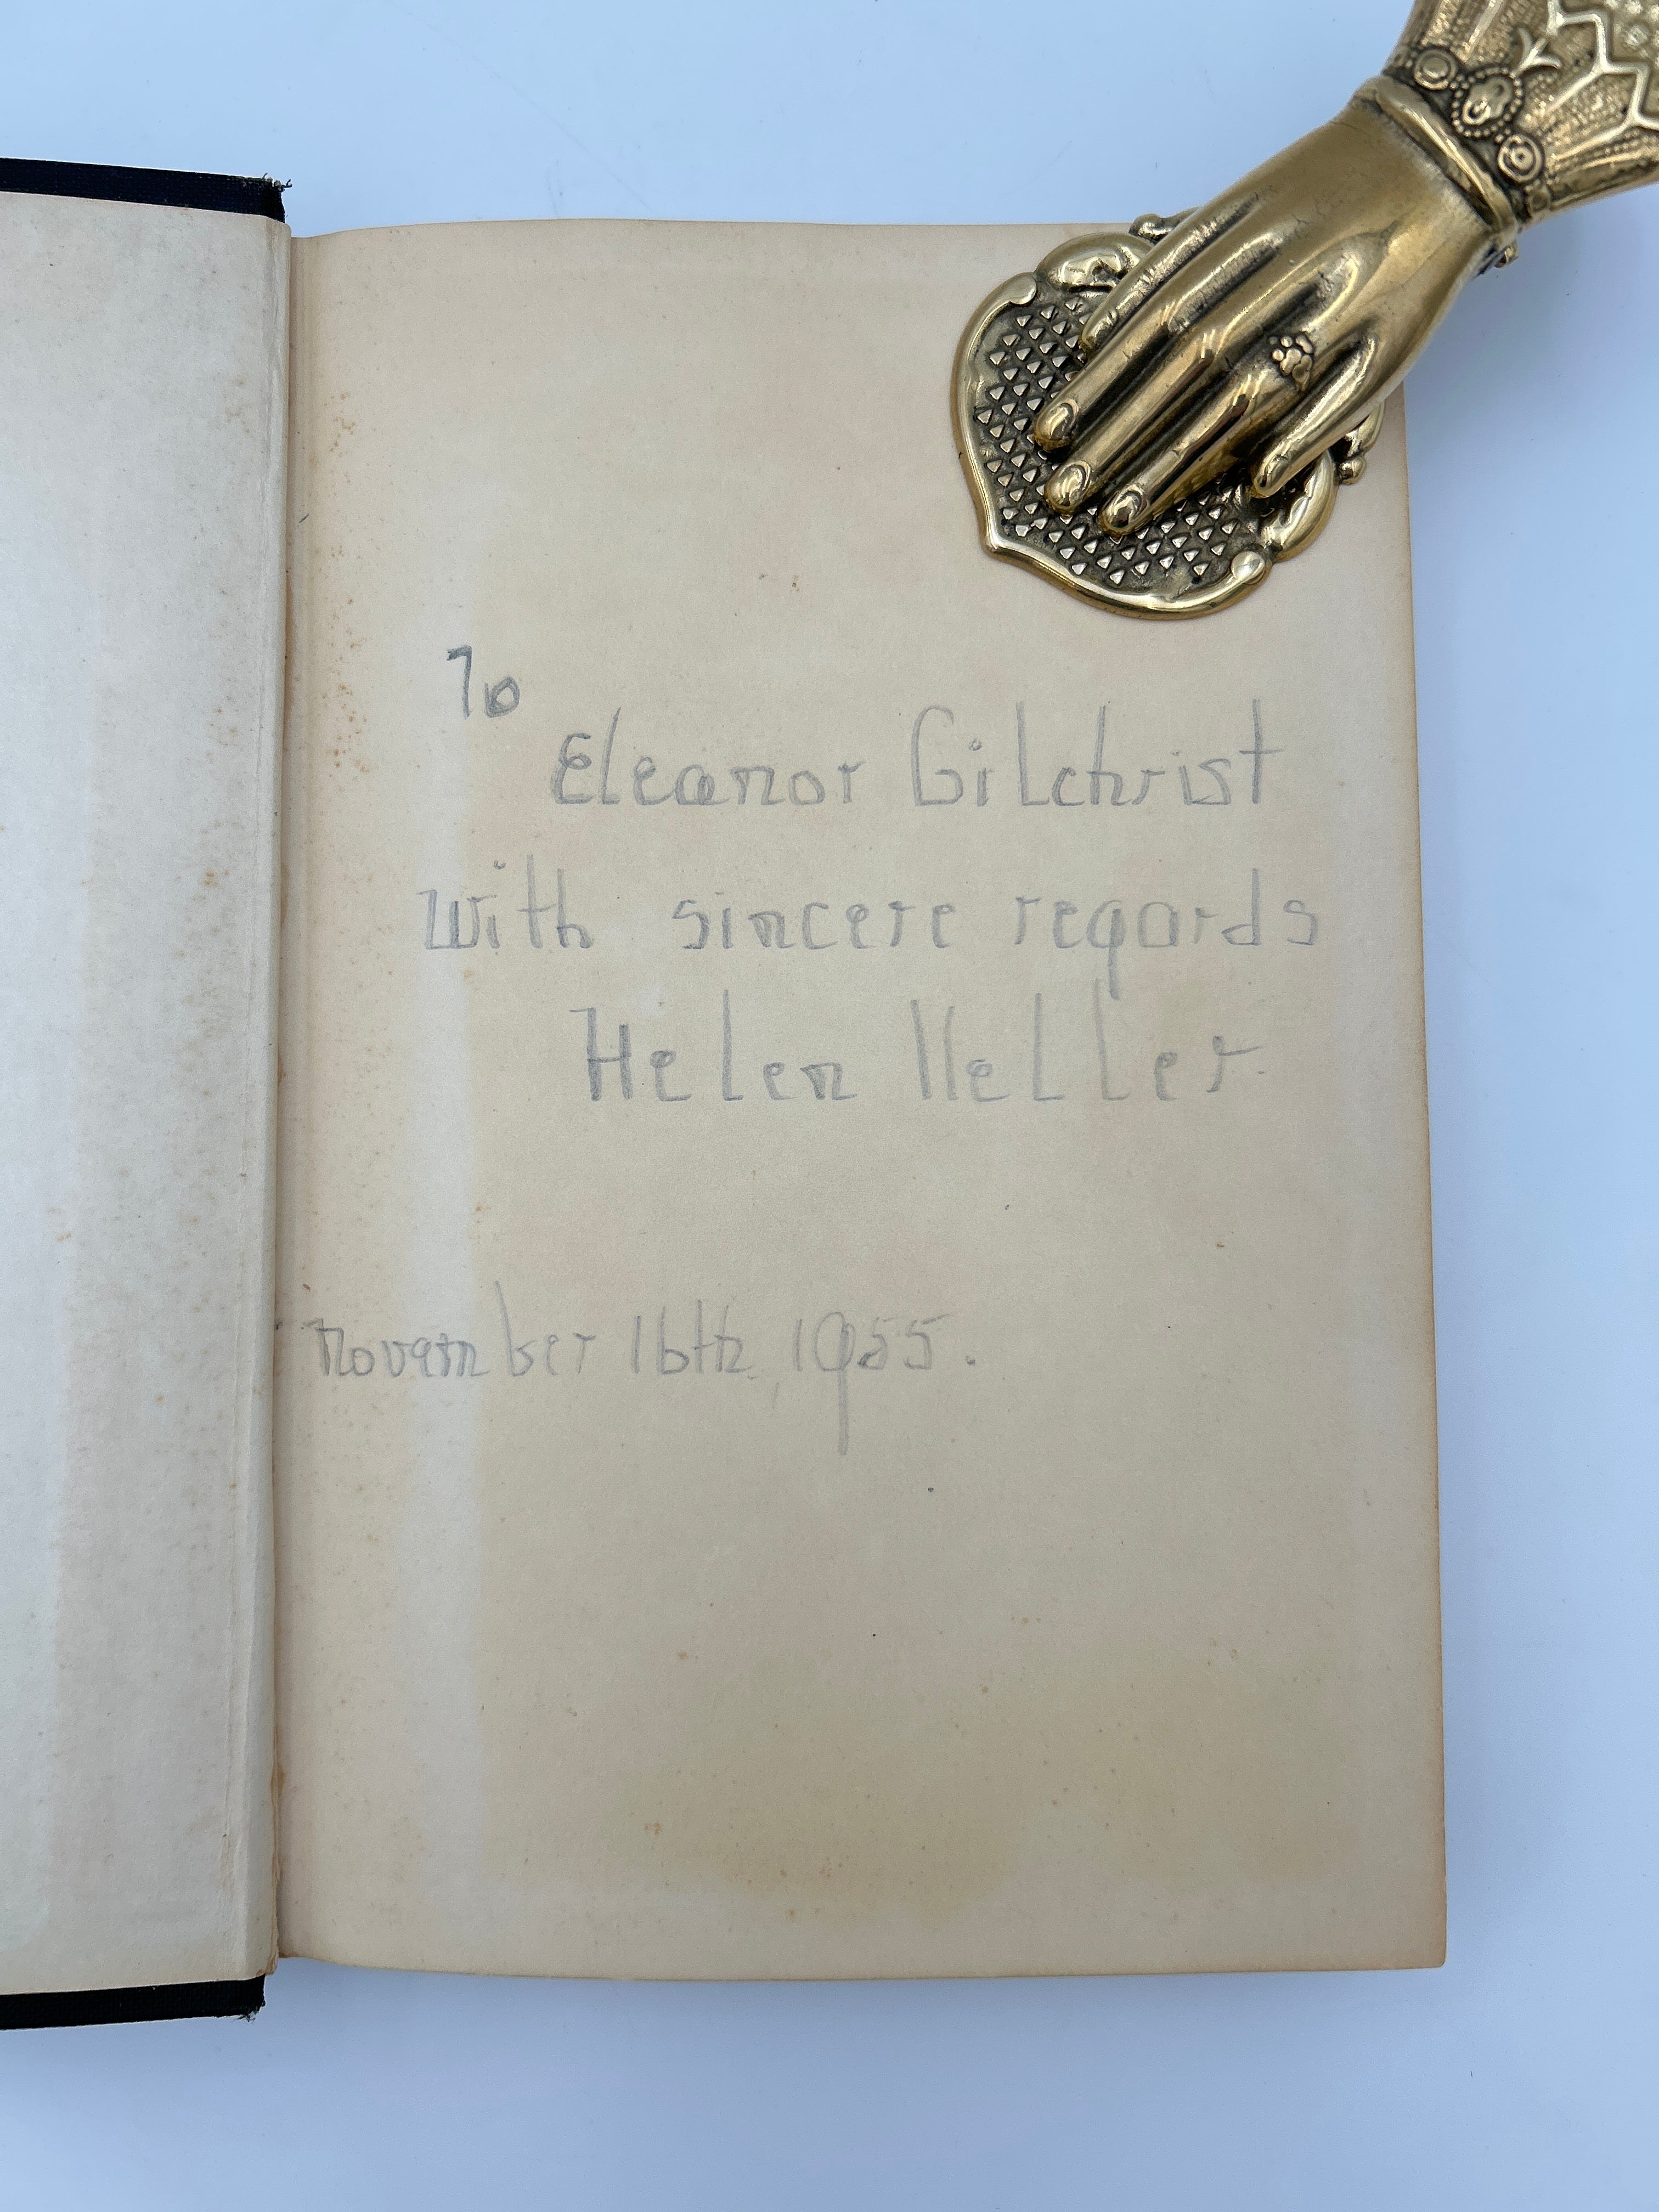 To
Eleanor Gilchrist
with sincere regards
Helen Keller.
November 16th, 1955.